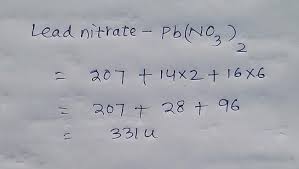 Lead nitrate - Pb(NO₃)₂
= 207 + 14×2 + 16×6
= 207 + 28 + 96
= 331u